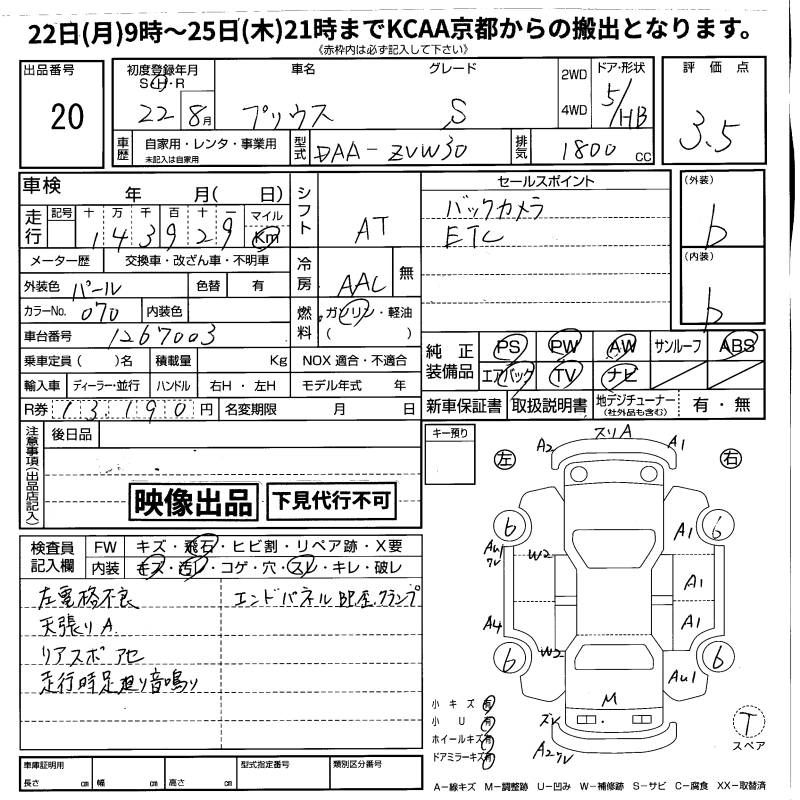 22日(月)9時～25日(木)21時までKCAA京都からの搬出となります。
《赤枠内は必ず記入して下さい》
出品番号 20
初度登録年月 S・H・R 22 8月
車名 プリウス
グレード S
2WD 4WD
ドア・形状 5/HB
評価点 3.5
車歴 自家用・レンタ・事業用 未記入は自家用
型式 DAA-ZVW30
排気 1800 CC
車検 年 月(日)
走行 記号 十 万 千 百 十 一 マイル Km
143929
シフト AT
メーター歴 交換車・改ざん車・不明車
冷房 AAC 無
外装色 パール 色替 有
カラーNo. 070 内装色
燃料 ガソリン・軽油 ( )
車台番号 1267003
乗車定員( )名 積載量 Kg NOX 適合・不適合
輸入車 ディーラー・並行 ハンドル 右H・左H モデル年式 年
R券 13,190円 名変期限 月 日
セールスポイント
バックカメラ
ETC
(外装) b
(内装) b
純正装備品 PS PW AW サンルーフ ABS
エアバッグ TV ナビ
新車保証書 取扱説明書 地デジチューナー (社外品も含む) 有・無
注意事項(出品店記入)
後日品
映像出品 下見代行不可
キー預り
検査員記入欄 FW キズ・飛石・ヒビ割・リペア跡・X要
内装 キズ・汚レ・コゲ・穴・スレ・キレ・破レ
左電格不良
天張りA
リアスポ アセ
走行時足廻り音鳴り
エンドパネル 即歪.クランプ
スリA
A2 A1
左 右
6 6
AU1 ワレ W2 A1
A1
A4 A1
W2
6 6
AU1
M
ズレ
A2ワレ
小キズ 有
小U 有
ホイールキズ 有
ドアミラーキズ 有
T
スペア
車庫証明用 長さ cm 幅 cm 高さ cm
型式指定番号 類別区分番号
A－線キズ M－調整跡 U－凹み W－補修跡 S－サビ C－腐食 XX－取替済